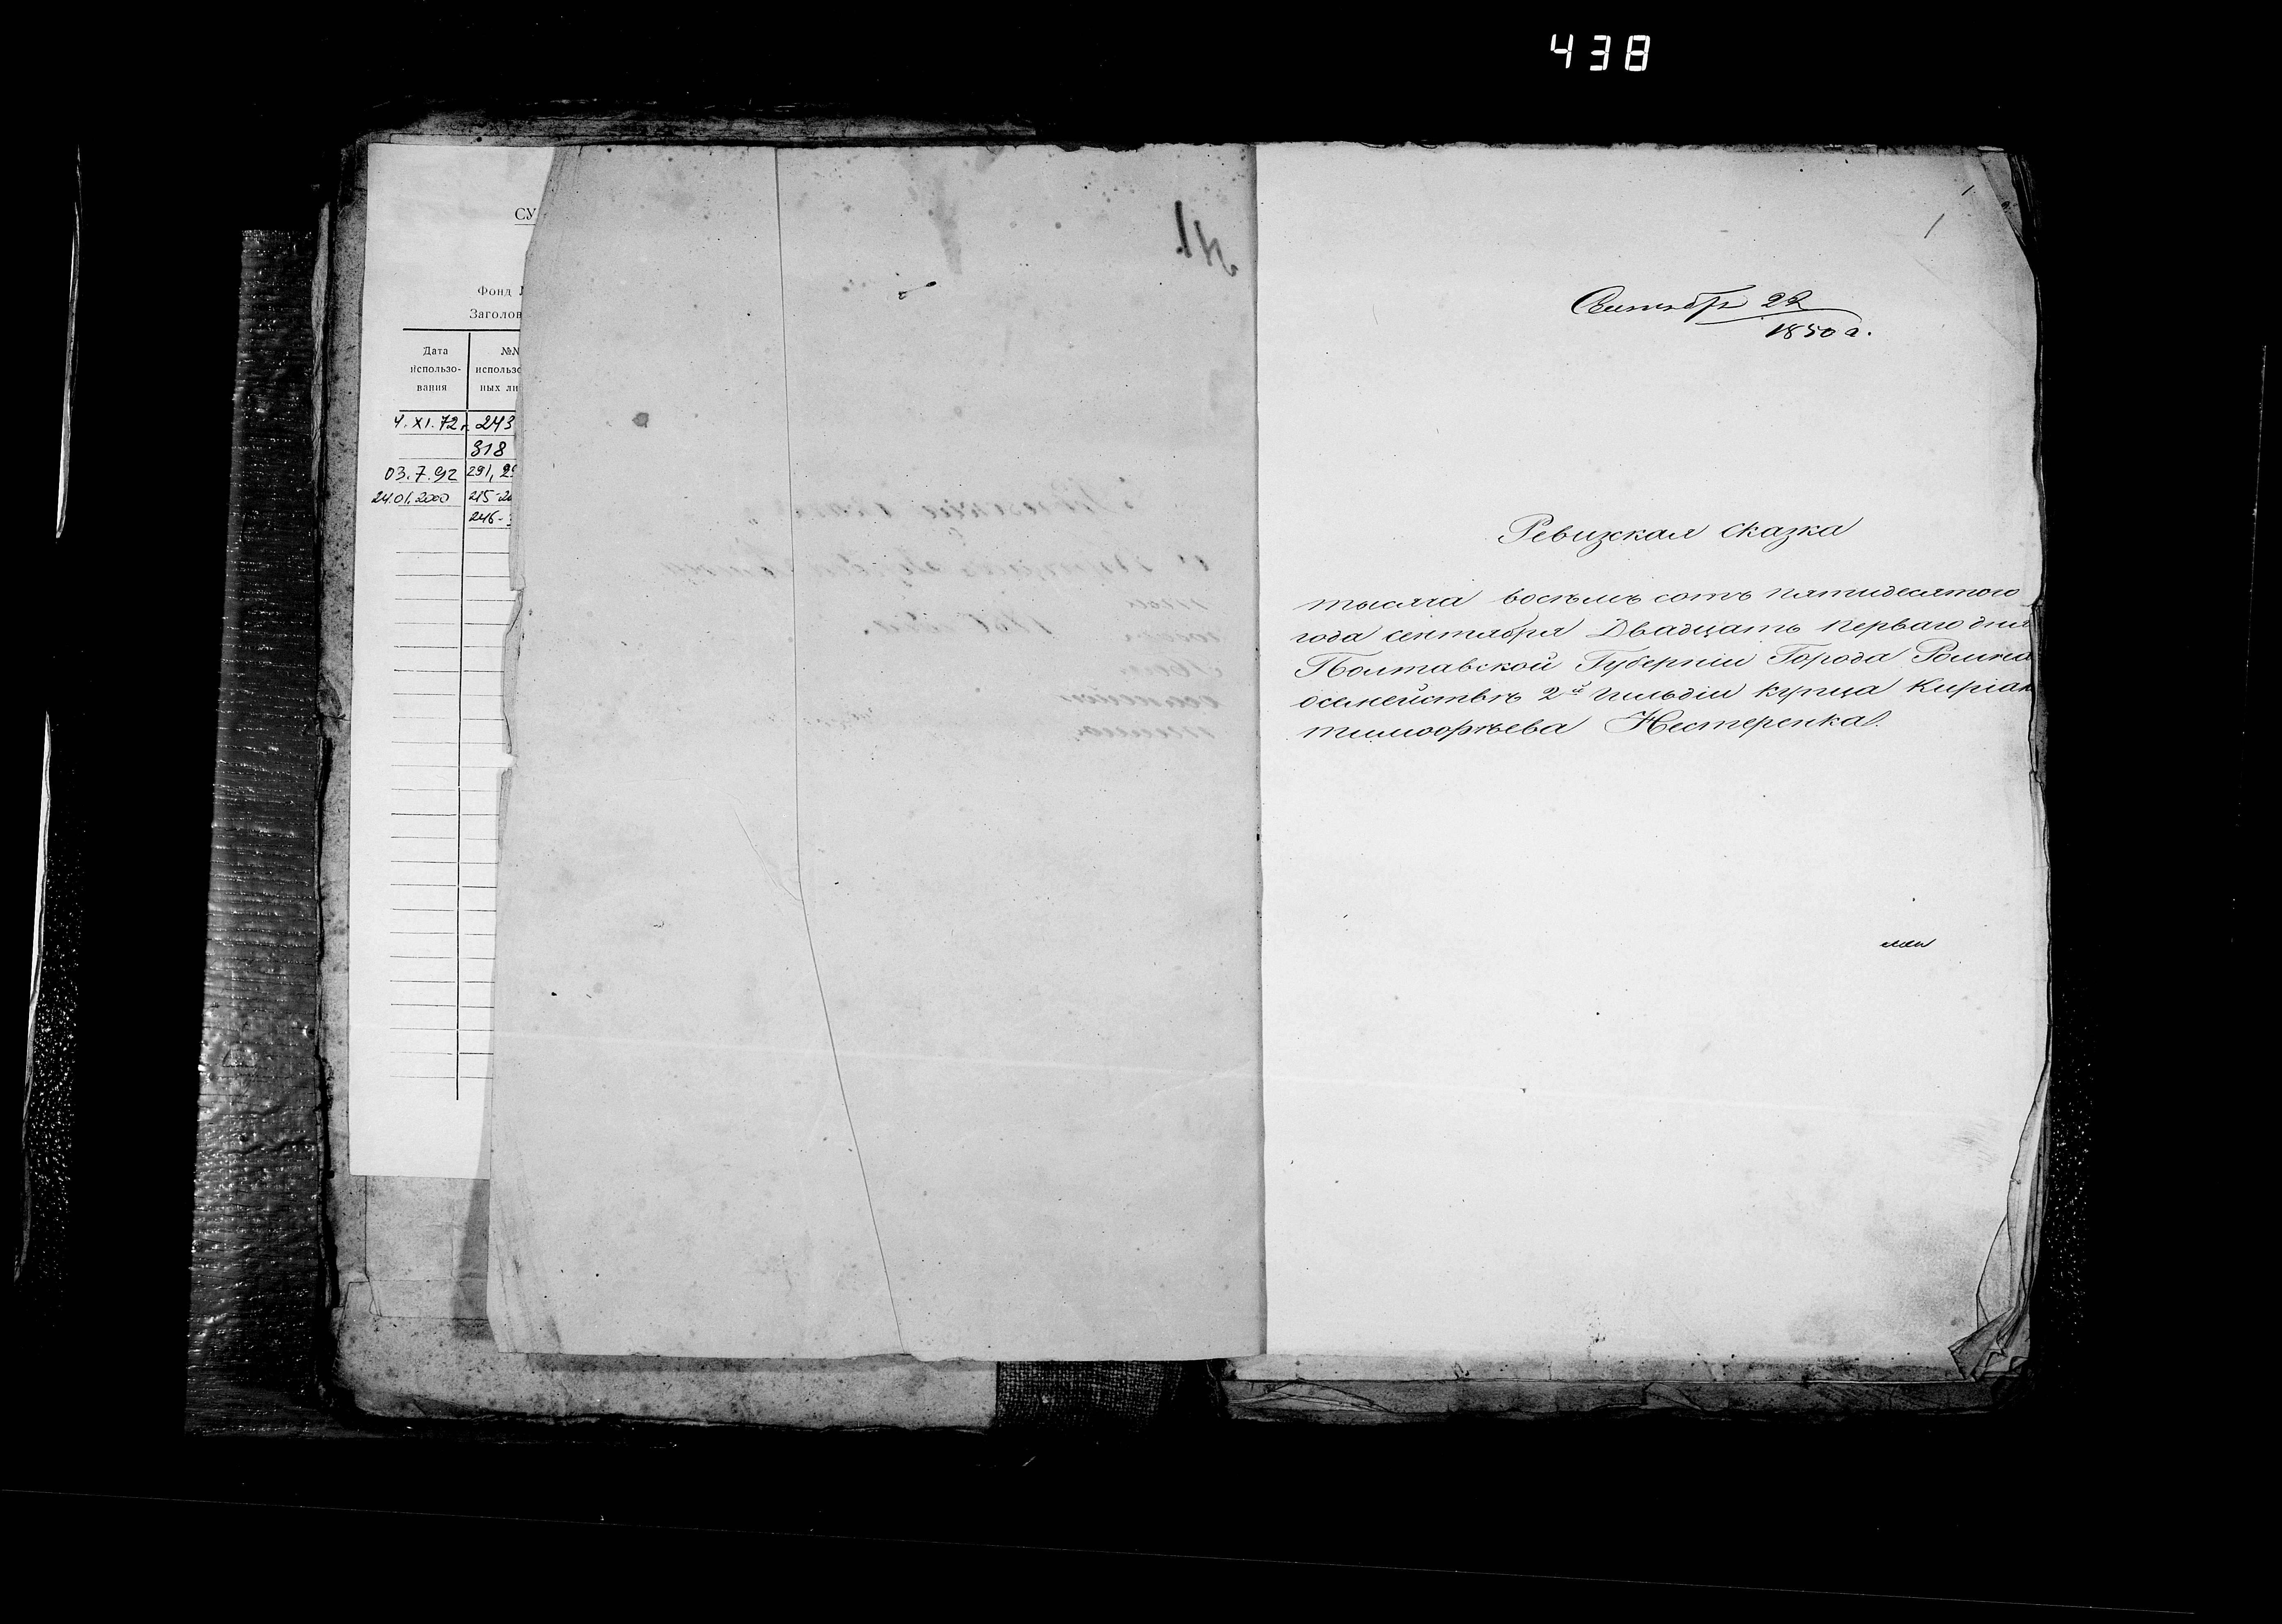 438
СУ
Фонд
Заголов
Дата использо- вания
№№ использо ных ли
4.XI.72г. 243
318
03.7.92 291, 29
24.01.2000 215-2
246-
1
1
Сентября 22
1850 г.
Ревизская сказка
тысяча восѣмь сотъ пятидесятого
года сентября Двадцать перваго дня
Полтавской Губерніи Города Ромна
осемействѣ 2й гильдіи купца Киріак
тимофѣева Нестеренка.